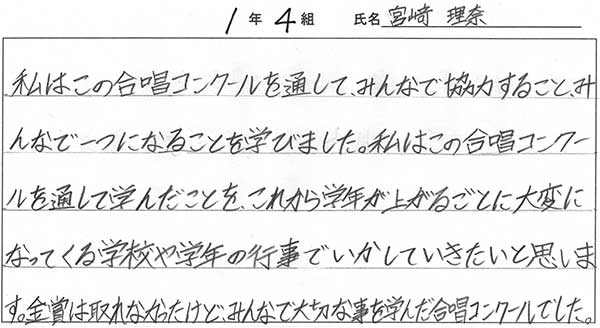 1年4組 氏名 宮崎 理奈
私はこの合唱コンクールを通して、みんなで協力すること、み
んなで一つになることを学びました。私はこの合唱コンクー
ルを通して学んだことを、これから学年が上がるごとに大変に
なってくる学校や学年の行事でいかしていきたいと思いま
す。金賞は取れなかったけど、みんなで大切な事を学んだ合唱コンクールでした。